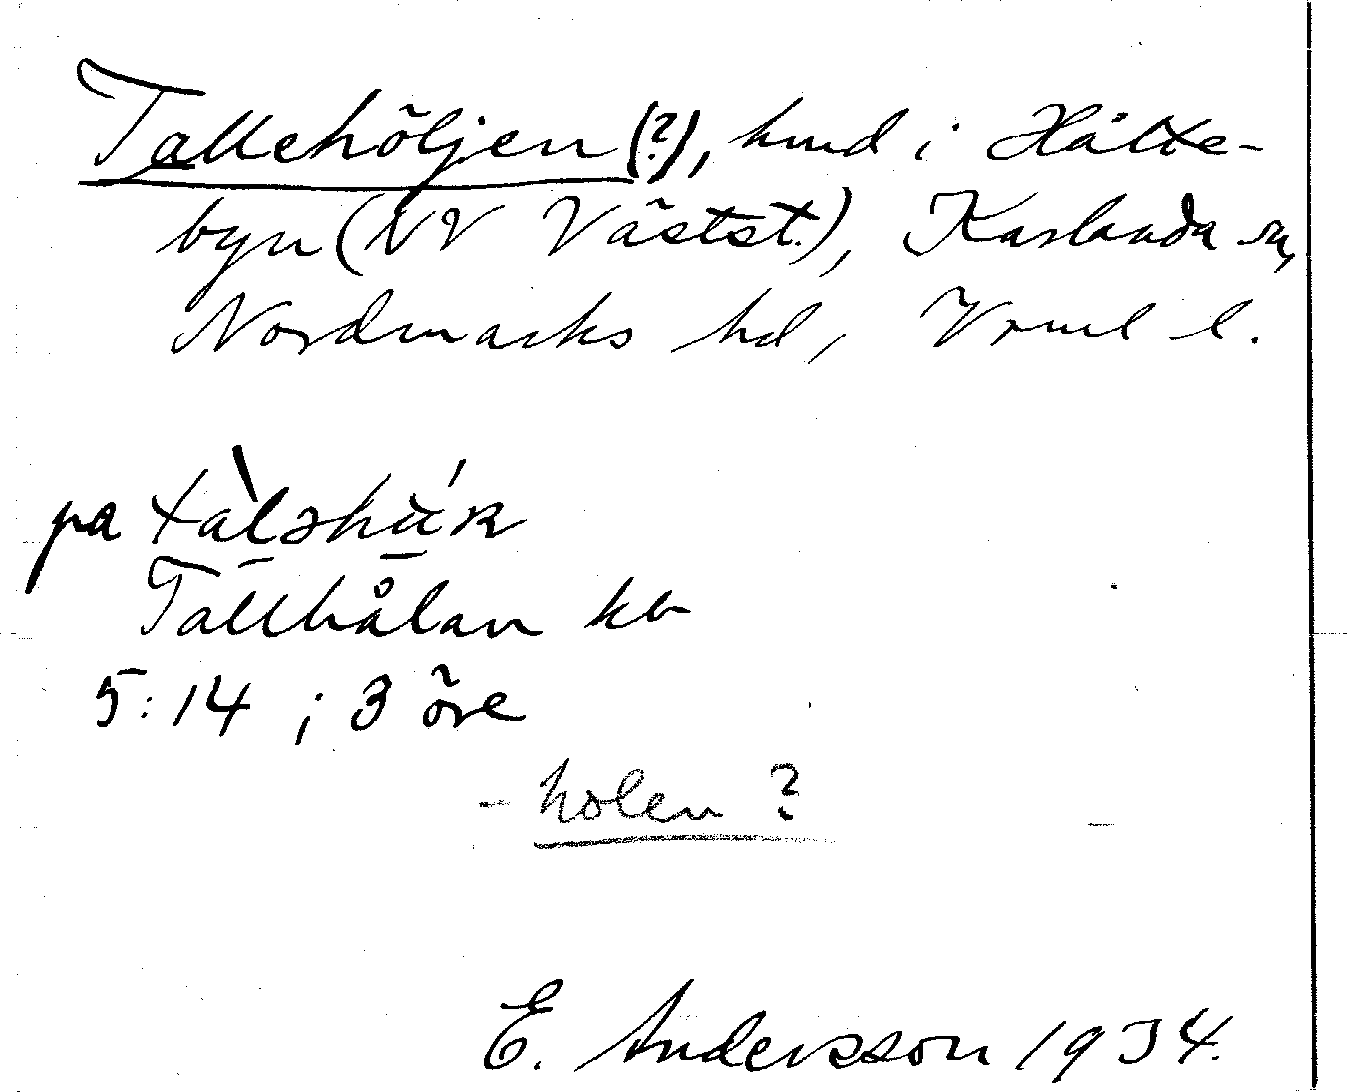 Tallehöljen(?), hmd i Hålte-
byn (NV Västst.), Karlanda sn,
Nordmarks hd, Vrml l.
pa
Tallhålan kb
5:14 ; 3 öre
- holen ?
E. Andersson 1934.